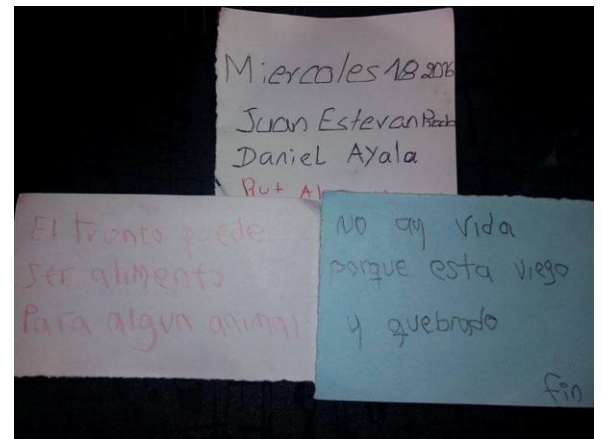 Miercoles 18 2016
Juan Estevan
Daniel Ayala
Rut
El tronco puede
ser alimento
Para algun animal
No ay vida
porque esta viego
y quebrado
fin